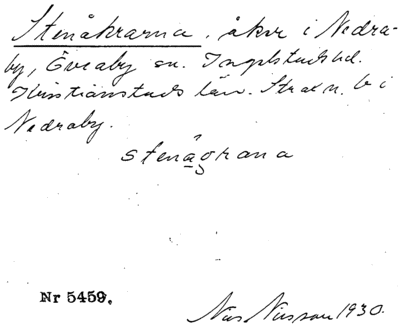 Stenåkrarna, åker i Nedra-
by, Övraby sn. Ingelstads hd.
Kristianstads län. Strax n. b i
Nedraby.
stenågrana
Nr 5459.
Nils Nilsson 1930.